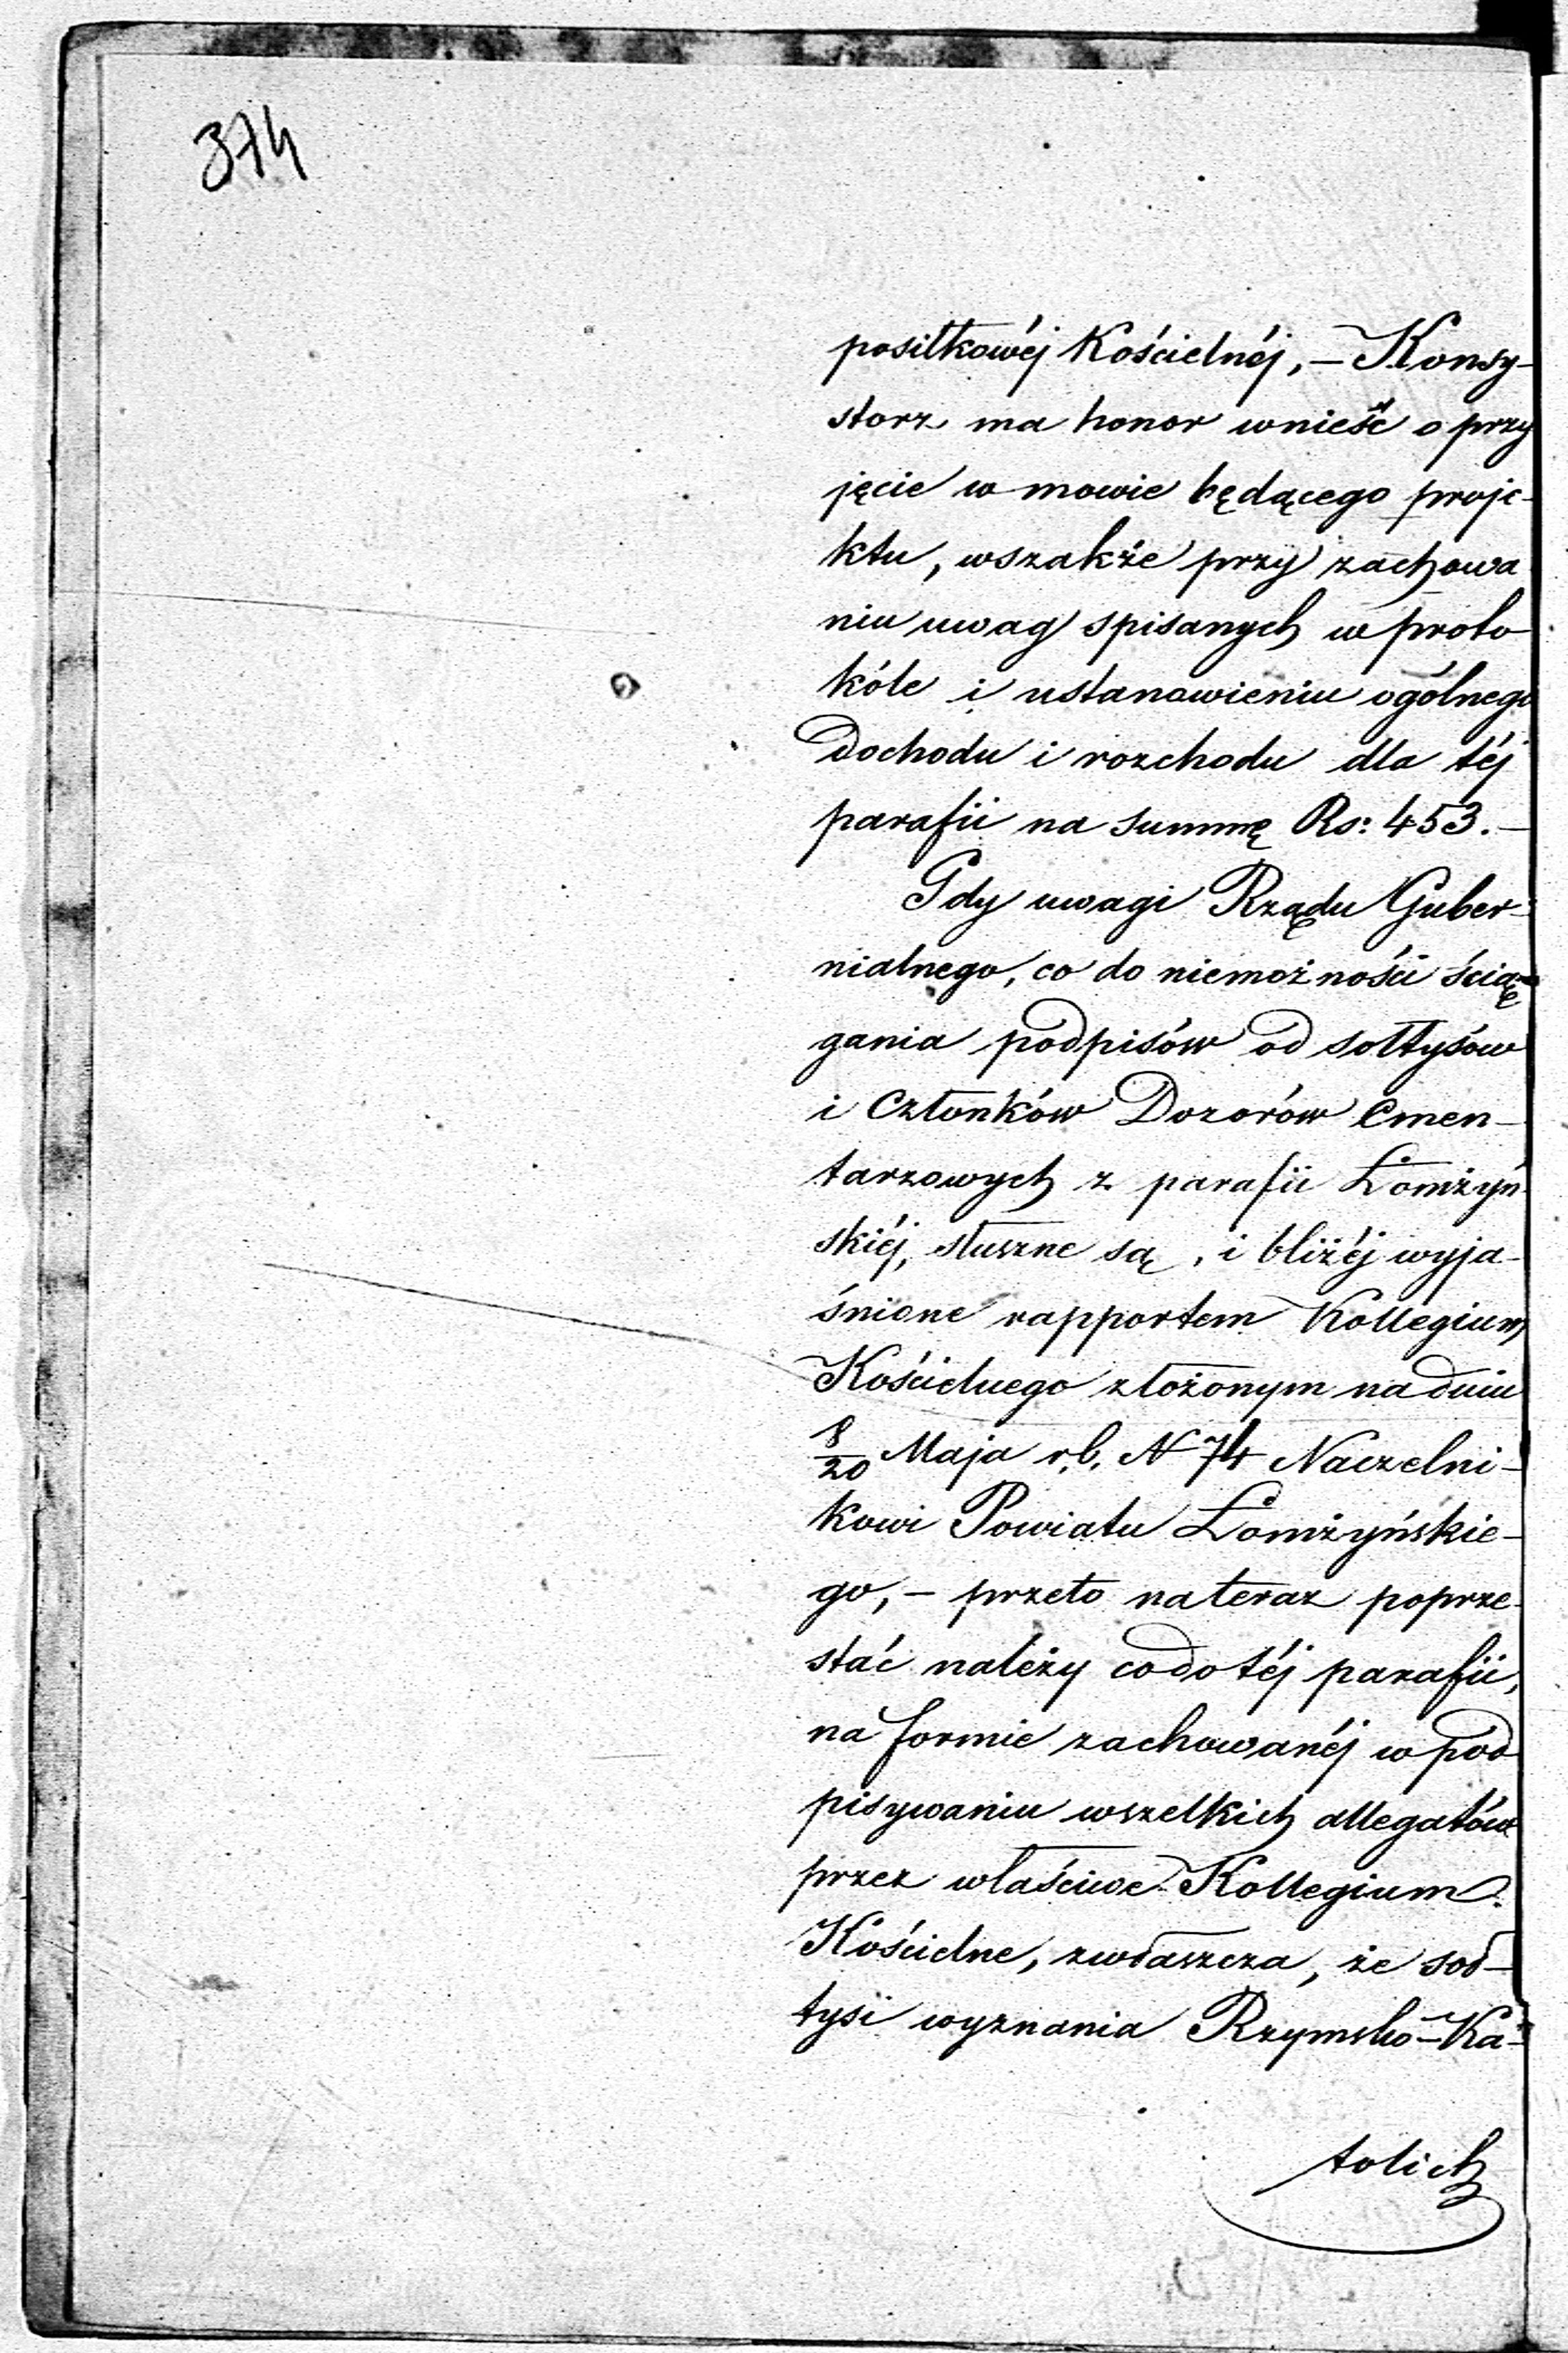 374
posiłkowéj Kościelnéj, – Konsy-
storz ma honor wnieść o przy
jęcie w mowie będącego proje-
ktu, wszakże przy zachowa
niu uwag spisanych w proto-
kóle i ustanowieniu ogólnego
Dochodu i rozchodu dla téj
parafii na summę Rs: 453. –
Gdy uwagi Rządu Guber-
nialnego, co do niemożności ścią-
gania podpisów od sołtysów
i Członków Dozorów Cmen-
tarzowych z parafii Łomżyń
skiéj, słuszne są, i bliżéj wyja-
śnione rapportem Kollegium
Kościelnego złożonym na dniu
8/20 Maja r.b. N 74 Naczelni-
kowi Powiatu Łomżyńskie-
go, – przeto na teraz poprze-
stać należy co do téj parafii,
na formie zachowanéj w pod
pisywaniu wszelkich allegatów
przez właściwe Kollegium
Kościelne, zwłaszcza, że soł-
tysi wyznania Rzymsko-Ka-
tolich